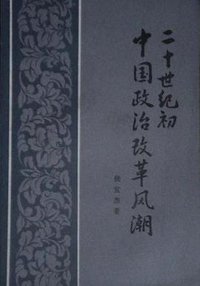 二十世纪初
中国政治改革风潮
侯宜杰 著